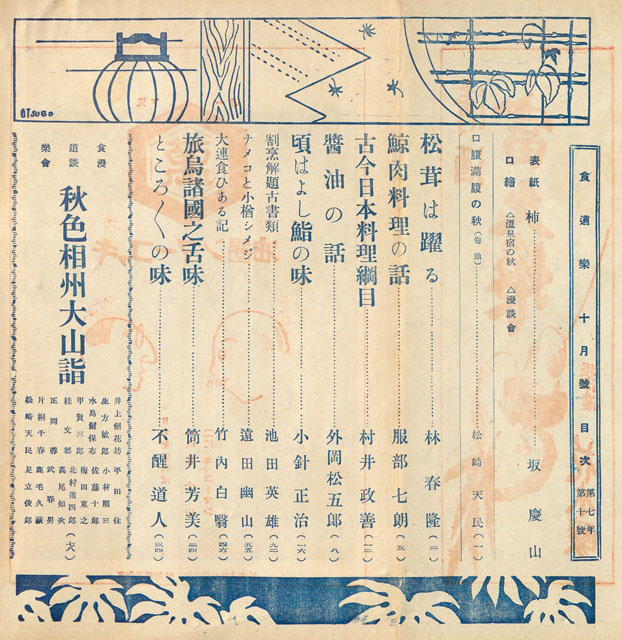 食道樂 十月號 目次 第七年 第十號
表紙 柿……坂慶山
口繪 △溫泉宿の秋 △漫談會
口腹滿腹の秋(卷頭)……松崎天民(一)
松茸は躍る……林春隆(二)
鯨肉料理の話……服部七朗(五)
古今日本料理綱目……村井政善(一三)
醬油の話……外岡松五郎(八)
頃はよし鮨の味……小針正治(一六)
割烹解題古書類……池田英雄
ナメコと小楢シメジ……遠田幽山
大連食ひある記……竹内白翳
旅烏諸國之舌味……筒井芳美
ところ〲の味……不醒道人
食道樂 漫談會
秋色相州大山詣
井上劍花坊 平田佳
生方敏郎 小林順三
水島爾保布 佐藤十郎
甲賀三郎 梅田東之
桂文都 北村道四郎
正岡蓉 高尾知次
片桐千春 武春男
松崎天民 鹿毛久藏
足立俊郎